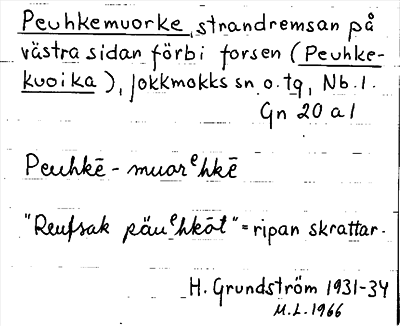 Peuhkemuorke, strandremsan på
västra sidan förbi forsen (Peuhke-
kuoika), Jokkmokks sn o. tg, Nb. l.
Gn 20 a 1
Peuhkē - muorᵉhkē
"Reufsak päuᵉhkōt" = ripan skrattar.
H. Grundström 1931-34
M.L. 1966